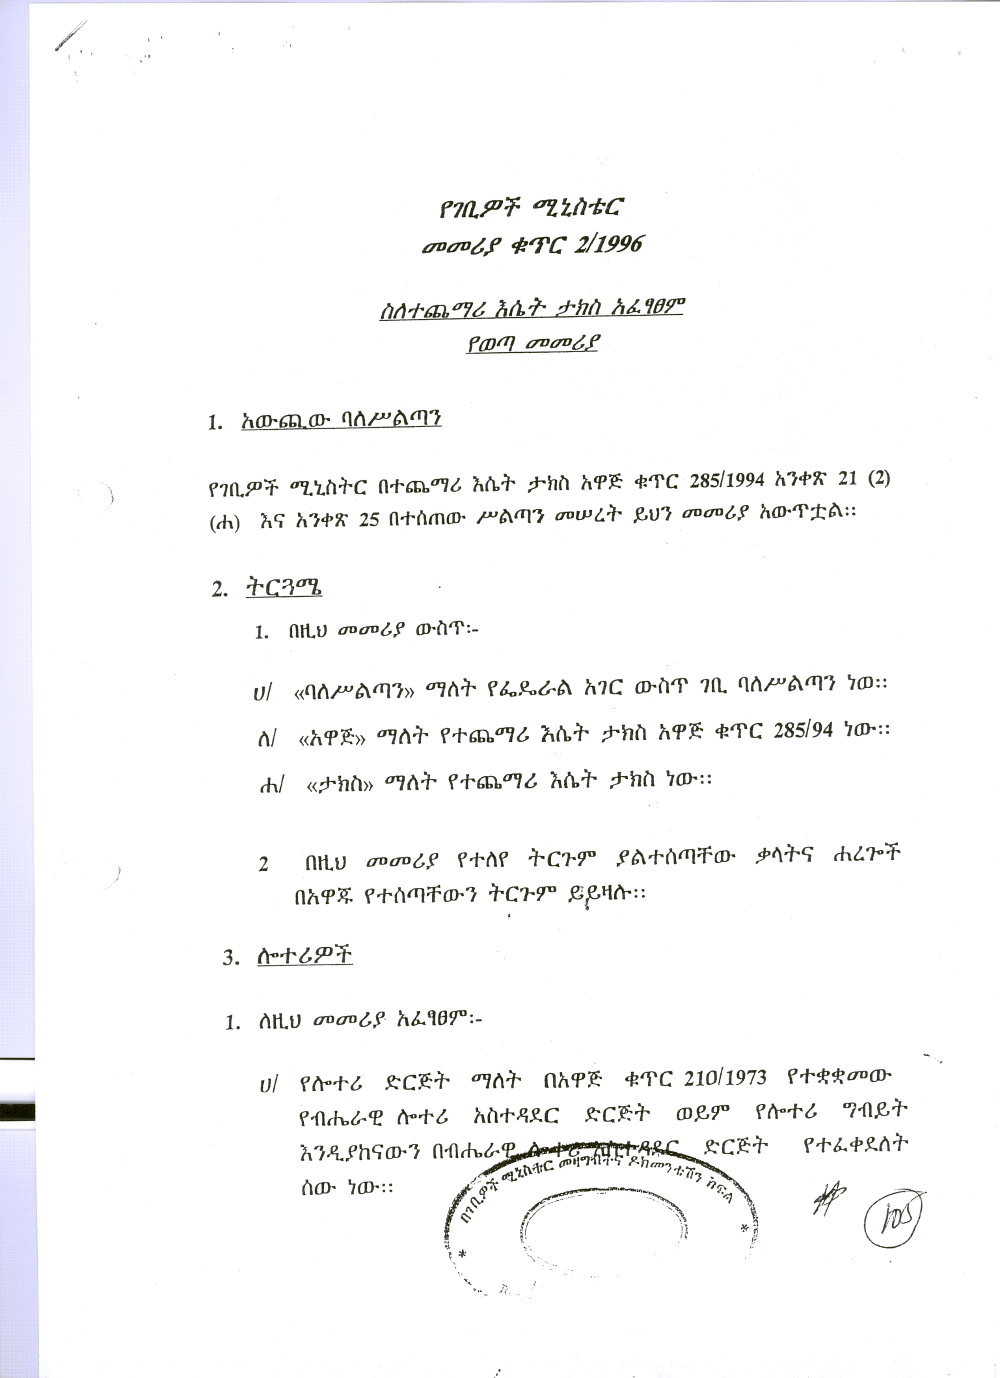 የገቢዎች ሚኒስቴር
መመሪያ ቁጥር 2/1996
ስለተጨማሪ እሴት ታክስ አፈፃፀም
የወጣ መመሪያ
1. አውጪው ባለሥልጣን
የገቢዎች ሚኒስትር በተጨማሪ እሴት ታክስ አዋጅ ቁጥር 285/1994 አንቀጽ 21 (2)
(ሐ) እና አንቀጽ 25 በተሰጠው ሥልጣን መሠረት ይህን መመሪያ አውጥቷል፡፡
2. ትርጓሜ
1. በዚህ መመሪያ ውስጥ፡-
ሀ/ «ባለሥልጣን» ማለት የፌዴራል አገር ውስጥ ገቢ ባለሥልጣን ነወ፡፡
ለ/ «አዋጅ» ማለት የተጨማሪ እሴት ታክስ አዋጅ ቁጥር 285/94 ነው፡፡
ሐ/ «ታክስ» ማለት የተጨማሪ እሴት ታክስ ነው፡፡
2 በዚህ መመሪያ የተለየ ትርጉም ያልተሰጣቸው ቃላትና ሐረጎች
በአዋጁ የተሰጣቸውን ትርጉም ይይዛሉ፡፡
3. ሎተሪዎች
1. ለዚህ መመሪያ አፈፃፀም፡-
ሀ/ የሎተሪ ድርጅት ማለት በአዋጅ ቁጥር 210/1973 የተቋቋመው
የብሔራዊ ሎተሪ አስተዳደር ድርጅት ወይም የሎተሪ ግብይት
እንዲያከናውን በብሔራዊ ሎተሪ አስተዳደር ድርጅት የተፈቀደለት
ሰው ነው፡፡
በገቢዎች ሚኒስቴር መዛግብትና ዶክመንቴሽን ክፍል
105